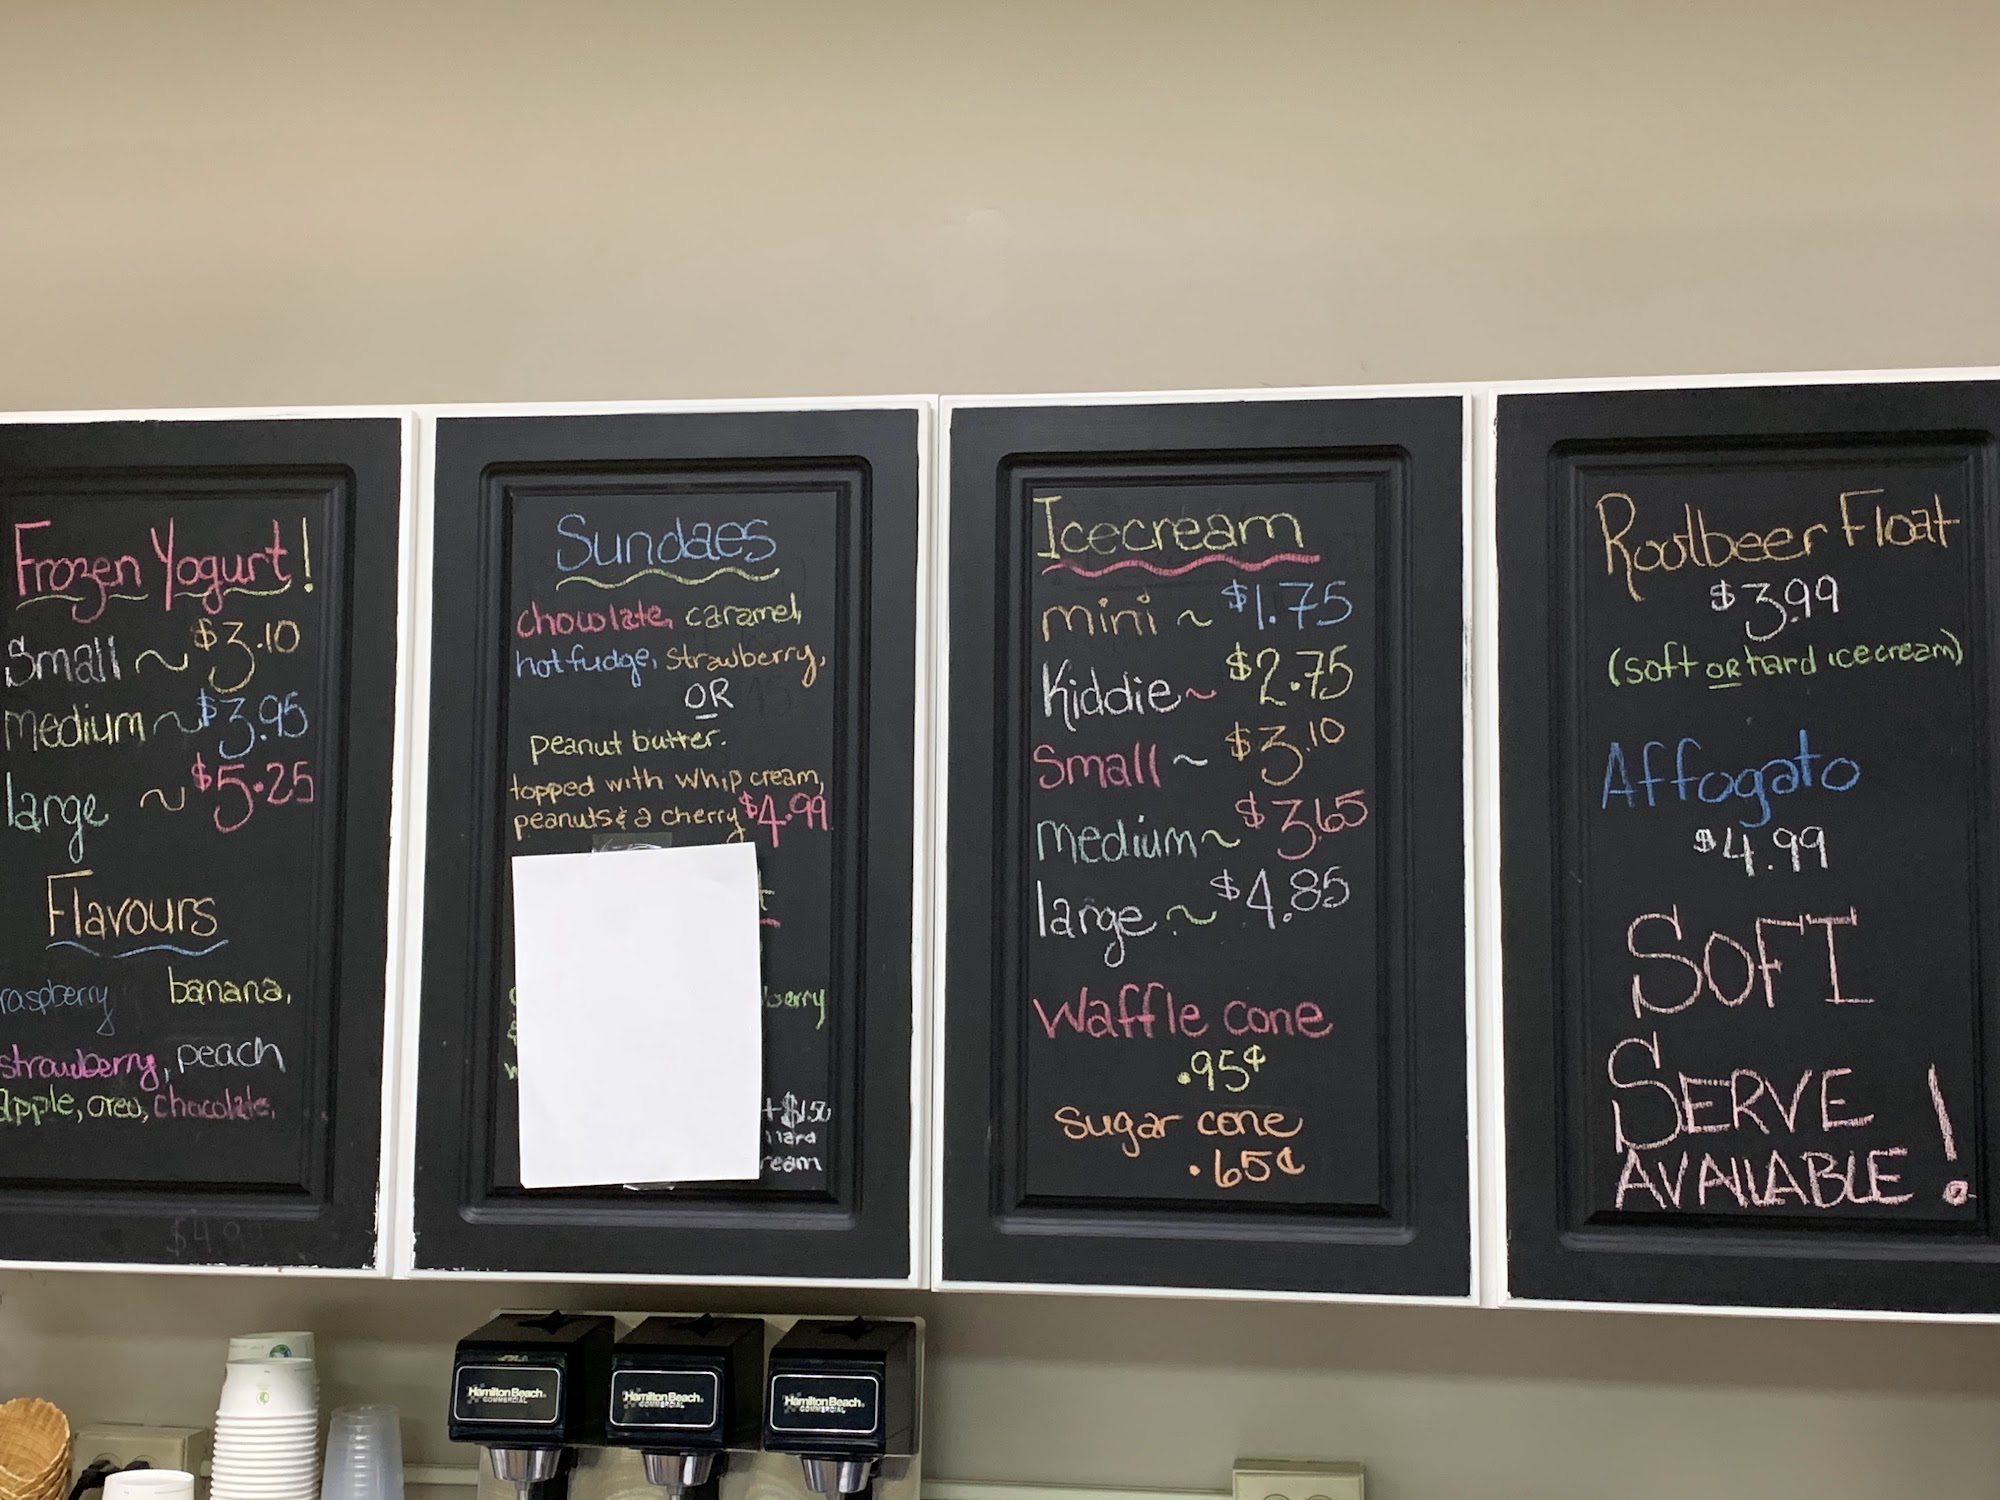 Frozen Yogurt!
Small ~ $3.10
medium ~ $3.95
large ~ $5.25
Flavours
raspberry banana,
strawberry, peach
apple, oreo, chocolate,
$4.9
Sundaes
chocolate, caramel,
hot fudge, strawberry,
OR
peanut butter.
topped with whip cream,
peanuts & a cherry $4.99
+$1.50
Icecream
mini ~ $1.75
Kiddie ~ $2.75
Small ~ $3.10
medium ~ $3.65
large ~ $4.85
Waffle cone
.95¢
sugar cone
.65¢
Rootbeer Float
$3.99
(soft OR hard icecream)
Affogato
$4.99
SOFT
SERVE
AVAILABLE!
Hamilton Beach
COMMERCIAL
Hamilton Beach
COMMERCIAL
Hamilton Beach
COMMERCIAL